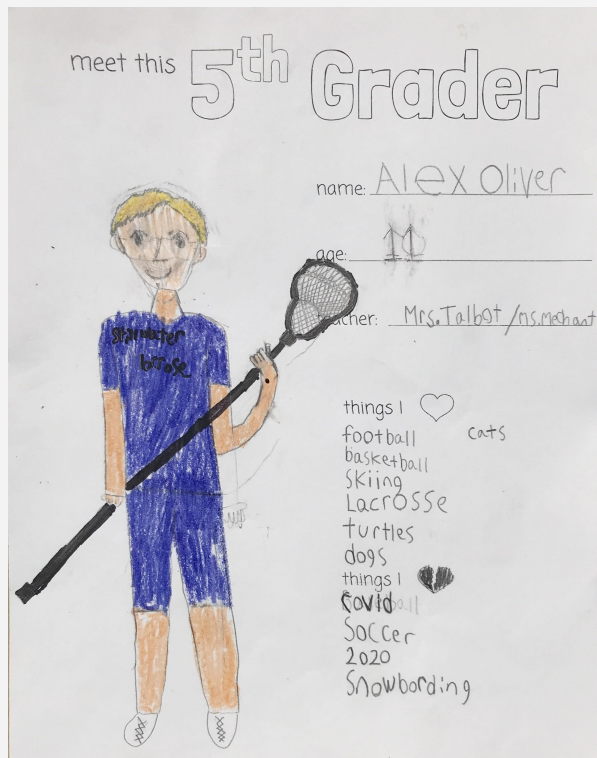 meet this 5th Grader
name: Alex Oliver
age: 11
teacher: Mrs.Talbot/Ms.Mechant
things I
football cats
basketball
Skiing
Lacrosse
turtles
dogs
things I
Covid
Soccer
2020
Snowbording